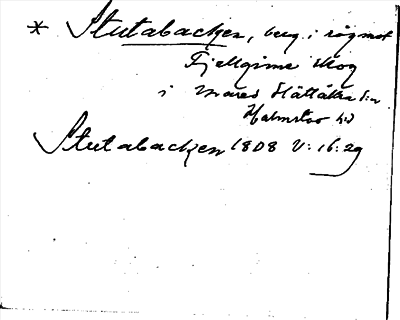 * Stutabacken, berg i rågmot
Fjellgime skog
i Mared Hållåkra sn
Halmstad hd
Stutabacken 1808 V: 16: 29